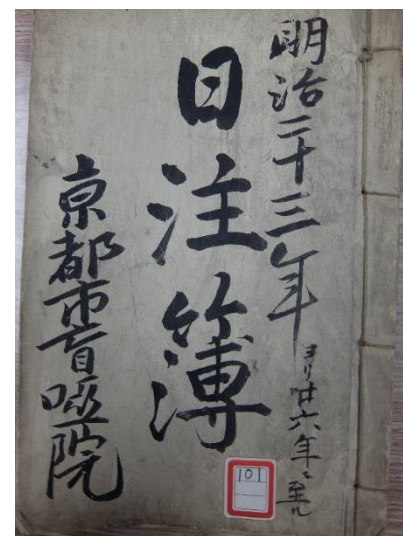 明治二十三年ヨリ廿六年ニ至ル
日注簿
京都市盲唖院
101